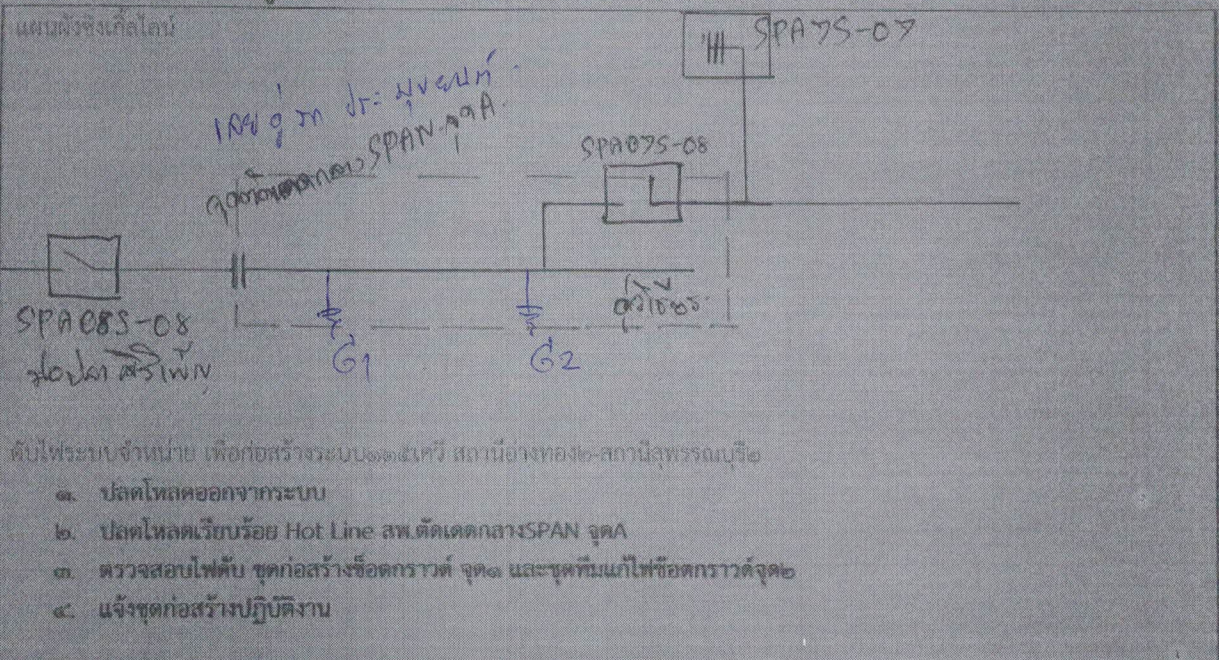 แผนผังซิงเกิ้ลไลน์
SPA7S-07
เลยอู่รถ ประมุขยนต์
จุดตัดเดดกลาง SPAN จุดA
SPA07S-08
SPA08S-08
G1
G2
ดับไฟระบบจำหน่าย เพื่อก่อสร้างระบบ๑๑๕เควี สถานีอ่างทอง๒-สถานีสุพรรณบุรี๒
๑. ปลดโหลดออกจากระบบ
๒. ปลดโหลดเรียบร้อย Hot Line สพ.ตัดเดดกลางSPAN จุดA
๓. ตรวจสอบไฟดับ ชุดก่อสร้างช็อตกราวด์ จุด๑ และชุดทีมแก้ไฟช๊อตกราวด์จุด๒
๔. แจ้งชุดก่อสร้างปฏิบัติงาน